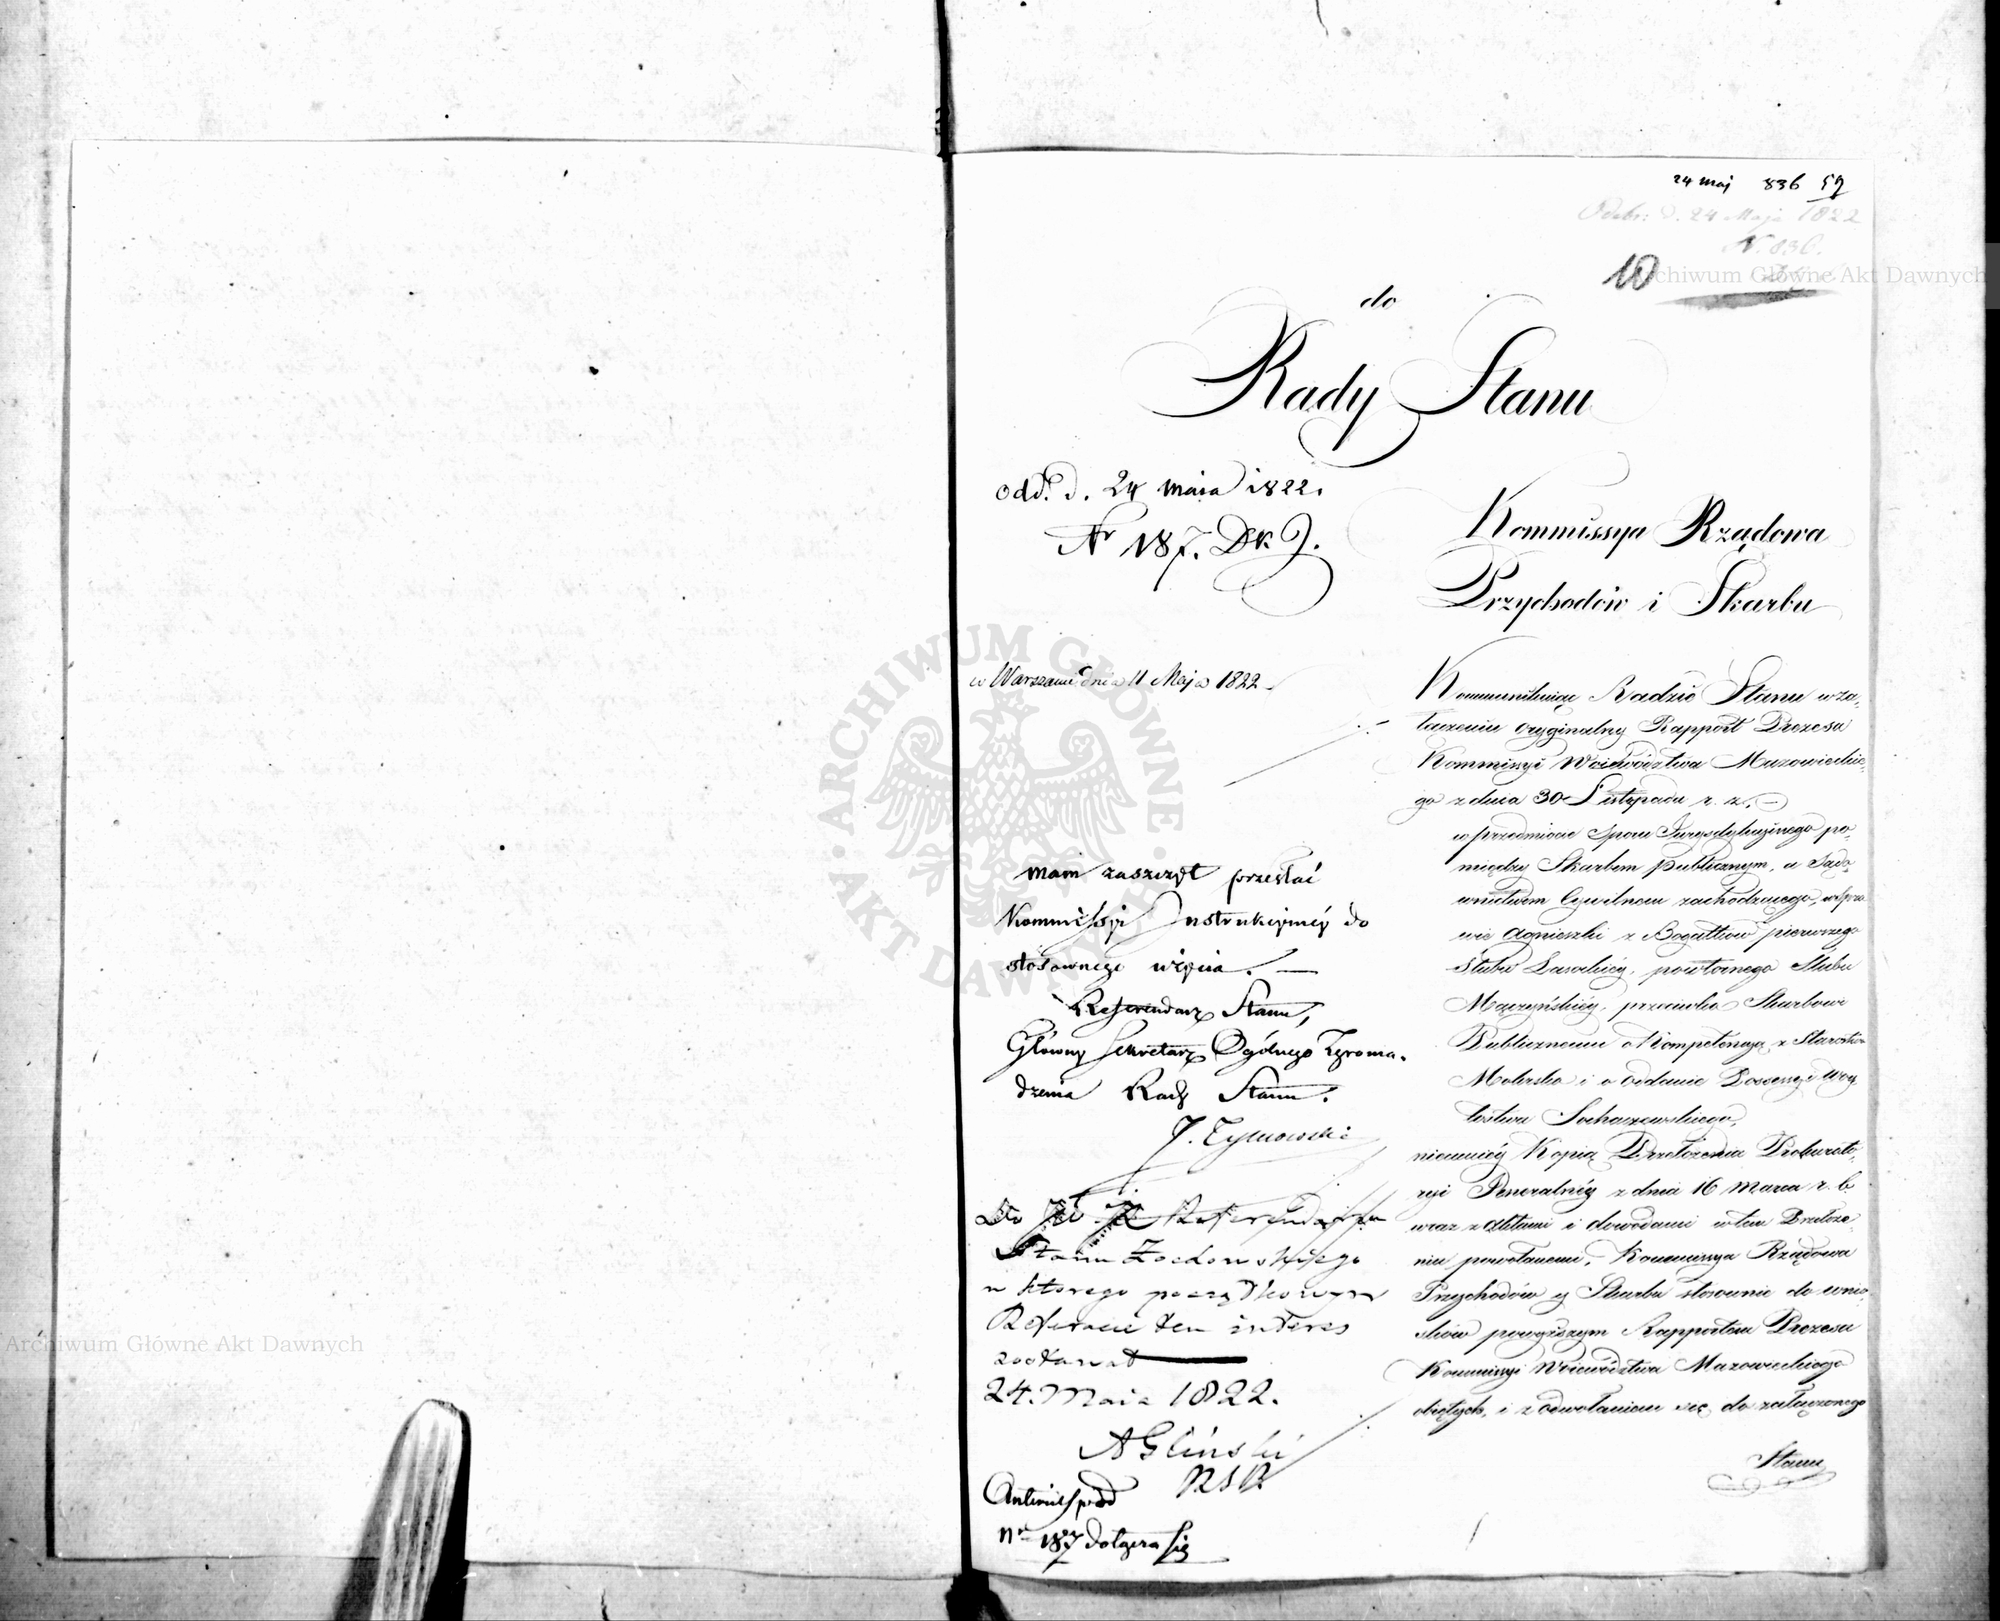 24 maj 836 59
Odebr: d. 24 Maja 1822
N. 836.
10
do
Rady Stanu
odd. d. 24 maia 1822.
Nr 187. Dk J.
Kommissya Rządowa
Przychodów i Skarbu
w Warszawie dnia 11 Maja 1822.
Kommunikuiąc Radzie Stanu w za-
łączeniu oryginalny Rapport Prezesa
Kommissyi Woiewództwa Mazowieckie-
go z dnia 30 Listopada r. z. —
w przedmiocie Sporu Jurysdykcyinego po-
między Skarbem publicznym, a Sądo-
wnictwem Cywilnem zachodzącego, w spra-
wie Agnieszki z Bogattków pierwszego
Ślubu Lasockiéy, powtórnego Ślubu
Mączyńskiéy, przeciwko Skarbowi
Publicznemu o Kompetencyą z Starostwa
i o oddanie Possessyi Wóy-
tostwa Sochaczewskiego,
niemniéy Kopią Przełożenia Prokurato-
ryi Generalnéy z dnia 16 Marca r. b.
wraz z aktami i dowodami w tem Przełoże-
niu powołanemi, Kommissya Rządowa
Przychodów y Skarbu stosownie do wnio-
sków powyższym Rapportem Prezesa
Kommissyi Woiewództwa Mazowieckiego
obiętych, i z odwołaniem się do załączonego
Stanu
mam zaszczyt przesłać
Kommissyi Instrukcyinéy do
stosownego użycia. —
Referendarz Stanu,
Główny Sekretarz Ogólnego Zgroma-
dzenia Rady Stanu.
J. Tymowski
Do JW Referendarza
Stanu
w którego początkowym
Referacie ten interes
zostawał
24. Maia 1822.
A Gliński
RSR
Antecessor pod
Nr 187 dołącza się
Archiwum Główne Akt Dawnych
Archiwum Główne Akt Dawnych
ARCHIWUM GŁÓWNE AKT DAWNYCH